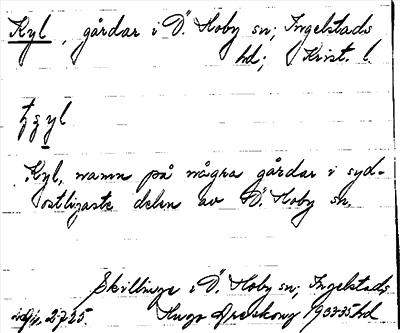 Kyl, gårdar i Ö. Hoby sn; Ingelstads
hd; Krist. l.
Kyl, namn på några gårdar i syd-
ostligaste delen av Ö. Hoby sn.
Skillinge i Ö. Hoby sn, Ingelstads
Hugo Areskoug 1933-35 hd